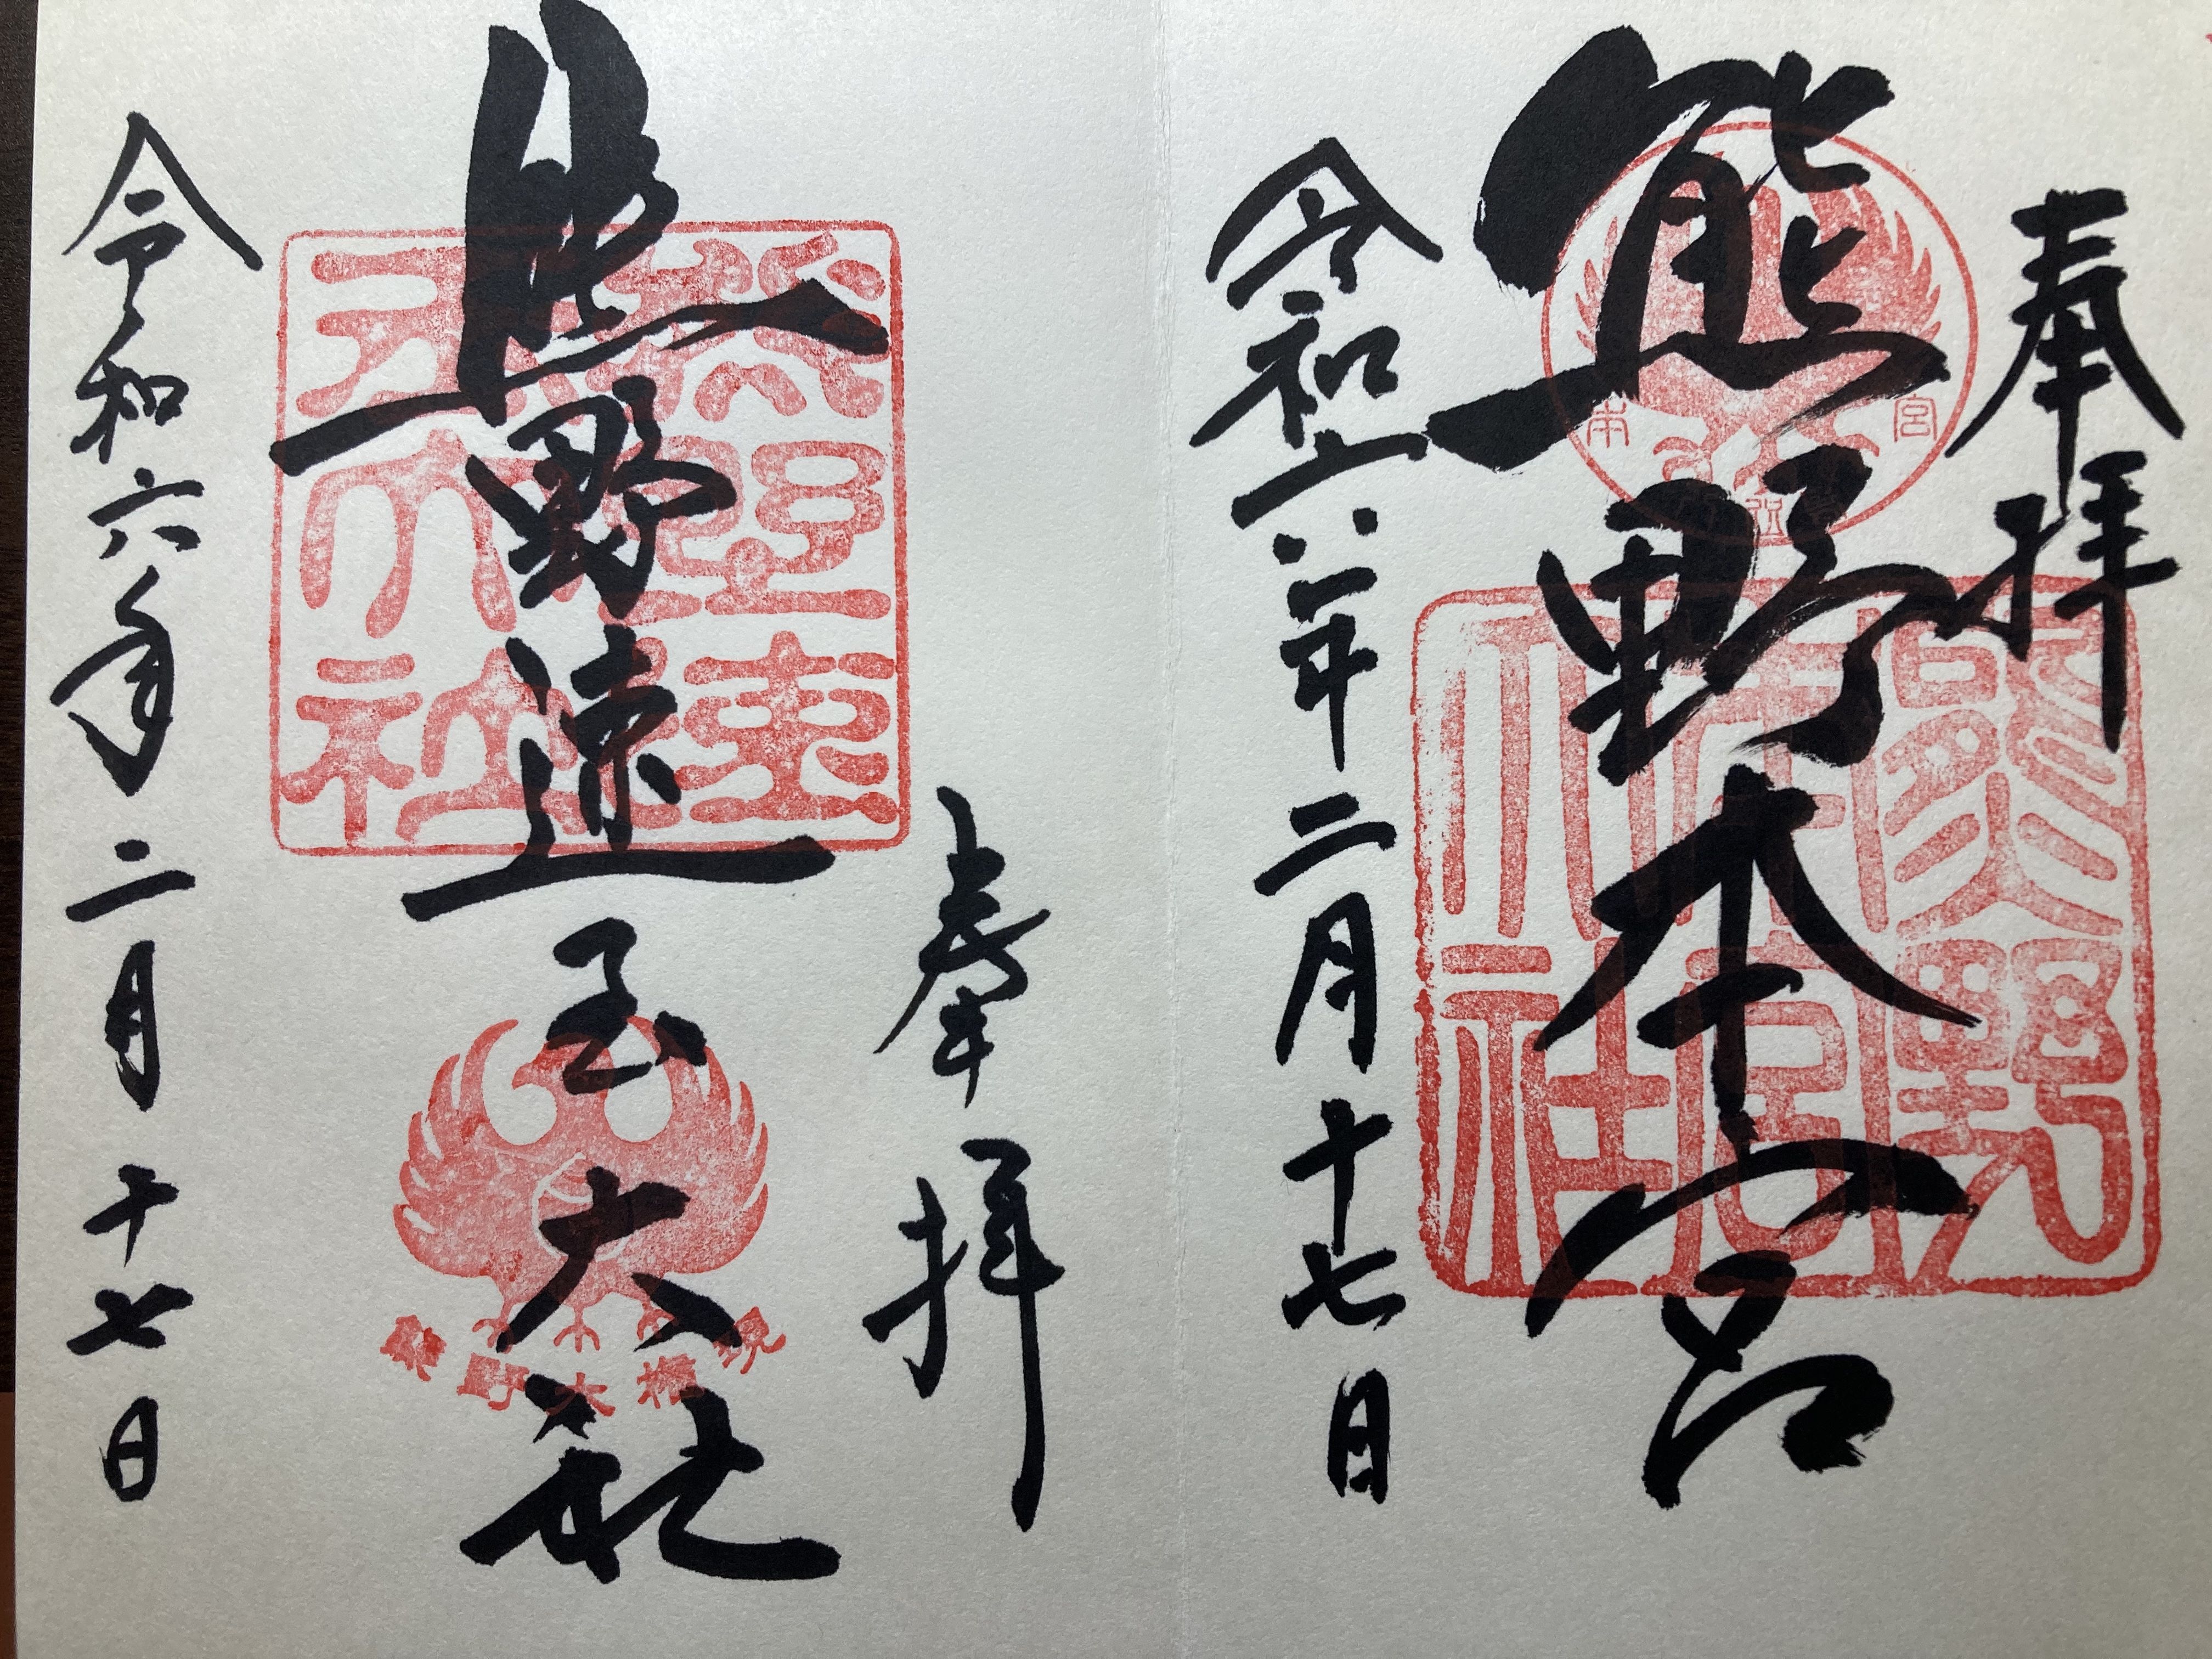 奉拝
熊野本宮
熊野本宮大社
本宮
令和六年二月十七日
奉拝
熊野速玉大社
熊野大権現
令和六年二月十七日